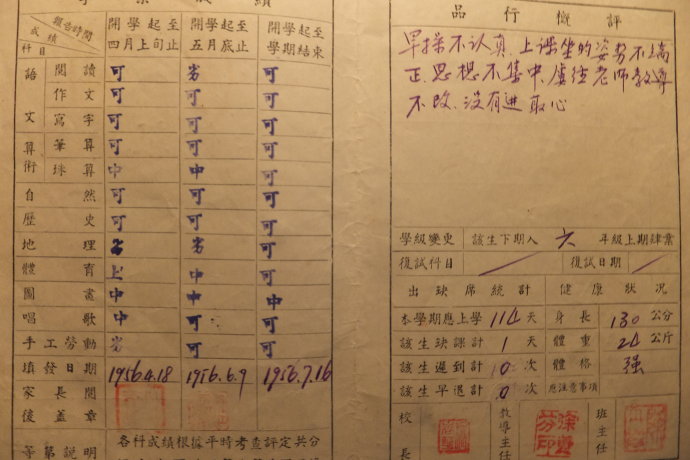 報告時間
成績
科目
開學起至四月上旬止
開學起至五月底止
開學起至學期結束
語文
閱讀 可 劣 可
作文 可 可 可
寫字 可 可 可
算術
筆算 可 可 可
珠算 中 中 可
自然 可 可 可
歷史 可 可 可
地理 劣 可
體育 上 中 可
圖畫 中 中 中
唱歌 中 可 可
手工勞動 劣 可 可
填發日期 1956.4.18 1956.6.9 1956.7.16
家長閱後蓋章
等第說明
各科成績根據平時考查評定共分
品行概評
早操不认真、上课坐的姿势不端
正思想不集中 老师教导
不改、没有进取心
學級變更 該生下期入 六 年級上期肄業
復試科目 復試日期
出缺席統計 健康狀況
本學期應上學 114 天 身長 130 公分
該生缺課計 1 天 體重 24 公斤
該生遲到計 0 次 體格 强
該生早退計 0 次 應注意事項
校長
教導主任
班主任